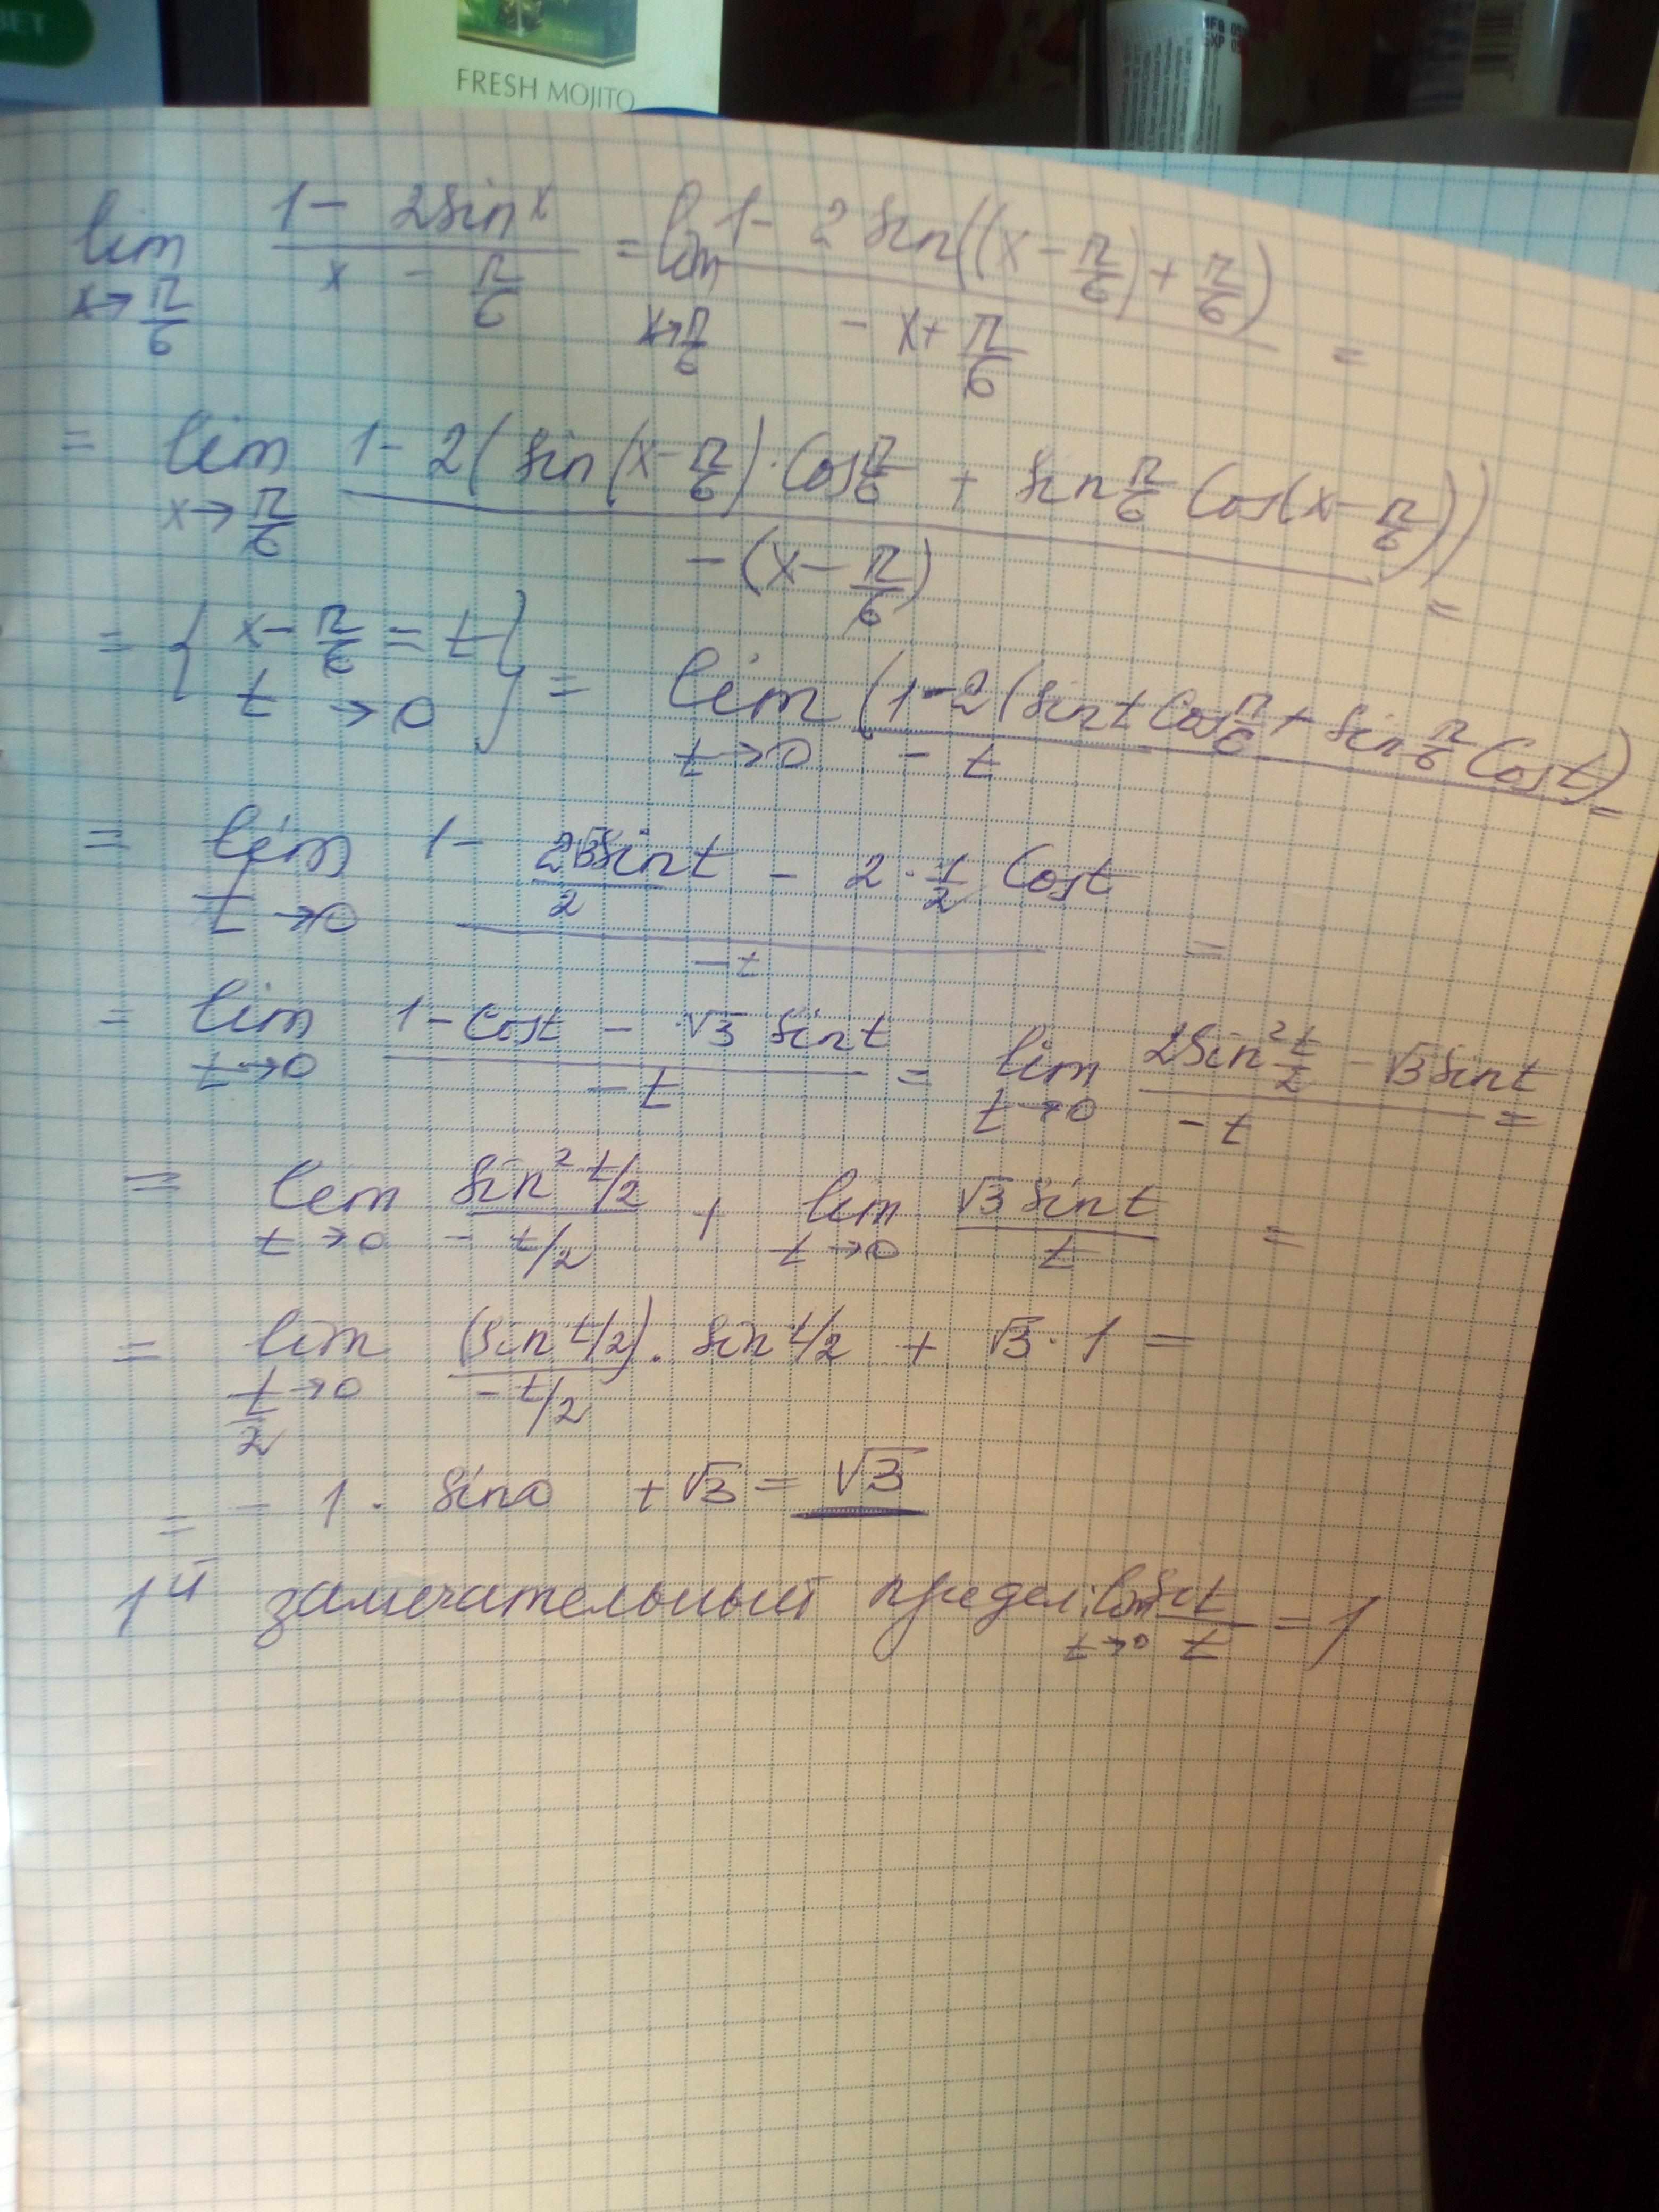 BET
FRESH MOJITO
MFG 05
EXP 05
lim x→π/6 (1 - 2sin x)/(x - π/6) = lim x→π/6 (1 - 2 sin((x - π/6) + π/6))/(- x + π/6) =
= lim x→π/6 (1 - 2(sin(x - π/6) · Cos π/6 + sin π/6 Cos(x - π/6)))/(-(x - π/6)) =
= { x - π/6 = t t → 0 } = lim t→0 (1 - 2(sin t Cos π/6 + sin π/6 Cost)/(- t) =
= lim t→0 (1 - 2√3sint/2 - 2 · 1/2 Cost)/(-t) =
= lim t→0 (1 - Cost - √3 sint)/(-t) = lim t→0 (2Sin² t/2 - √3 sint)/(-t) =
= lim t→0 (sin² t/2)/(- t/2) + lim t→0 (√3 sint)/t =
= lim t/2→0 (sin t/2)/(- t/2) · sin t/2 + √3 · 1 =
= - 1 · sin0 + √3 = √3
1й замечательный предел: lim t→0 sint/t = 1